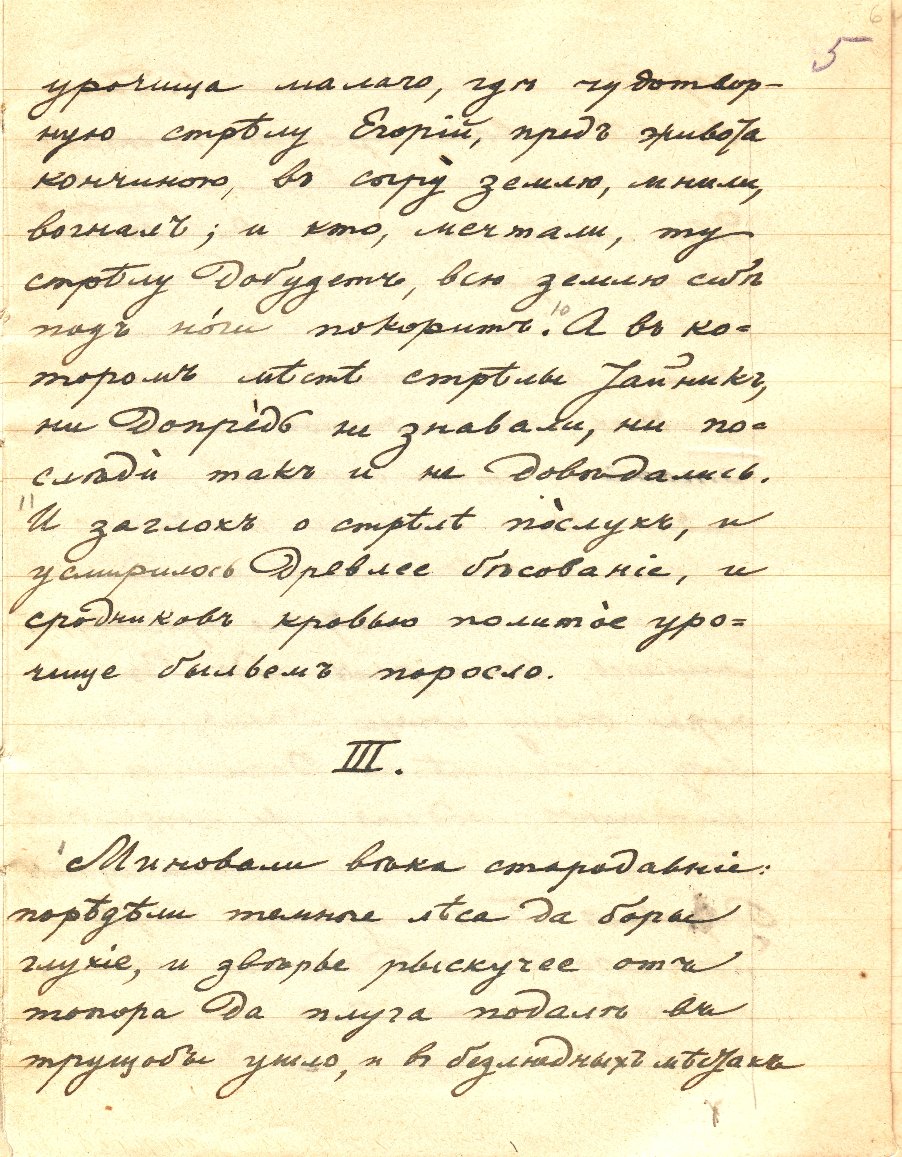 6
5
урочища малаго, гдѣ чудотвор-
ную стрѣлу Егорій, предъ живота
кончиною, въ сыру̀ землю, мнили,
вогналъ; и кто, мечтали, ту
стрѣлу добудетъ, всю землю себѣ
подъ но́ги покоритъ. 10 А въ ко=
торомъ мѣстѣ стрѣлы тайникъ,
ни допрѐдь не знавали, ни по=
слѣдѝ такъ и не довѣдались.
11 И заглохъ о стрѣлѣ по̀слухъ, и
усмирилось древлее бѣсованіе, и
сродниковъ кровью полито̀е уро=
чище быльемъ поросло.
III.
1 Миновали вѣка стародавніе:
порѣдѣли темные лѣса да боры
глухіе, и звѣрье рыскучее отъ
топора да плуга подалѣ въ
трущобы ушло, и въ безлюдныхъ мѣстахъ